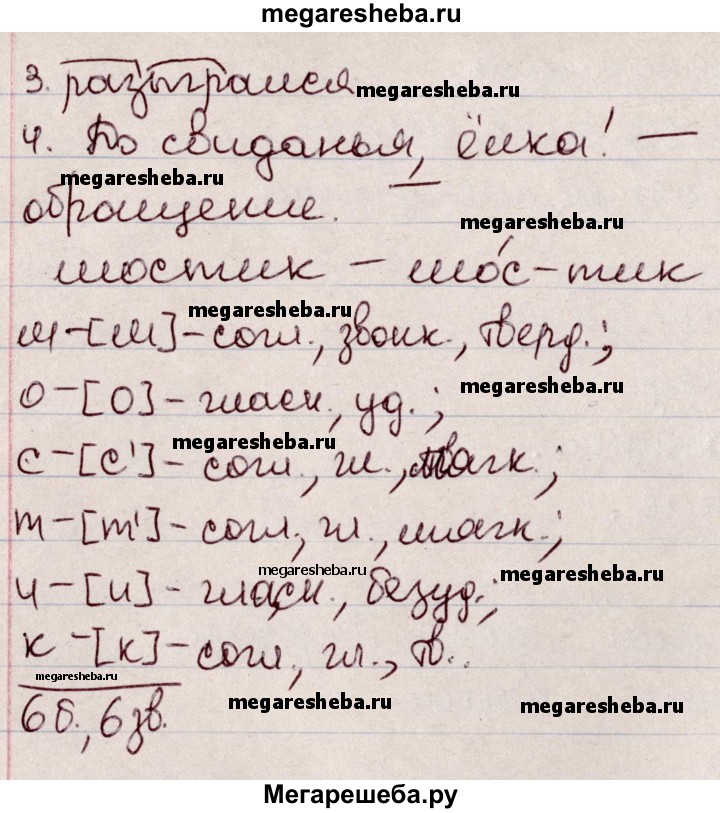 megaresheba.ru
3. разыгрался megaresheba.ru
4. До свиданья, ёлка! —
megaresheba.ru
обращение. megaresheba.ru
мостик — мо́с-тик
megaresheba.ru
м-[м]-согл., звонк., тверд.;
о-[о]-гласн., уд.; megaresheba.ru
megaresheba.ru
с-[с']-согл., гл., мягк.;
т-[т']-согл., гл., мягк.;
megaresheba.ru megaresheba.ru
и-[и]-гласн., безуд.;
к-[к]-согл., гл., тв..
megaresheba.ru
6 б., 6 зв. megaresheba.ru megaresheba.ru
Мегарешеба.ру